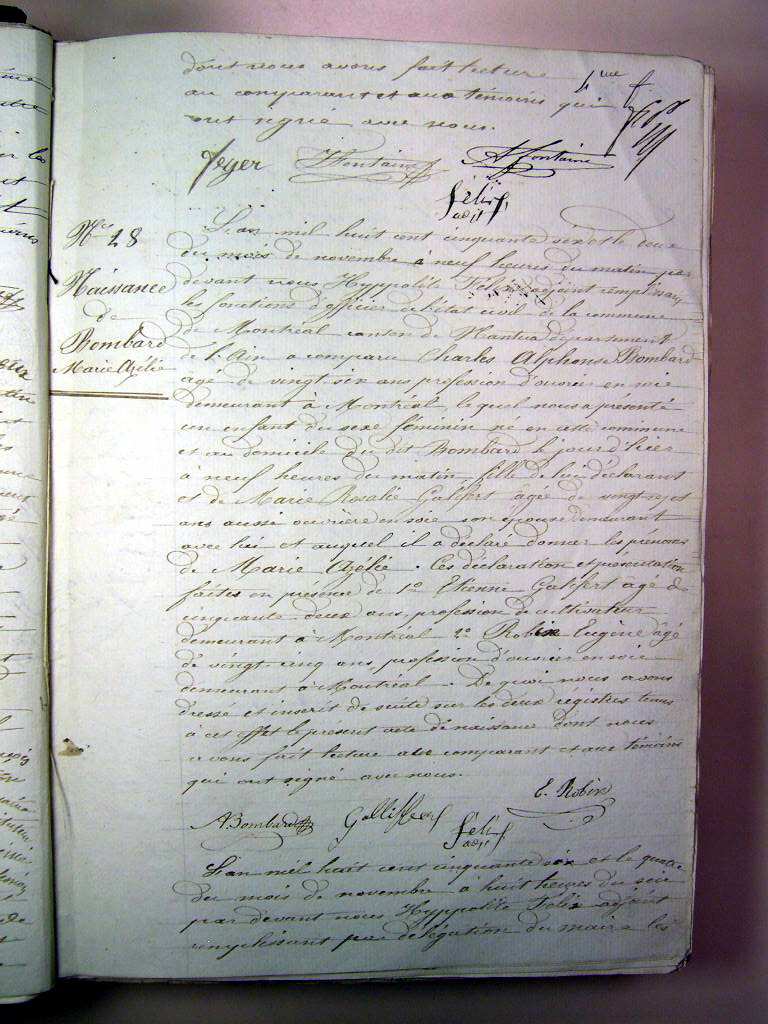 dont nous avons fait lecture
au comparant et aux témoins qui
ont signé avec nous.
4me
Foyer
AFontaine
Félix
adjt
No 28
Naissance
de
Bombard
Marie Azélie
L'an mil huit cent cinquante six et le deux
du mois de novembre à neuf heures du matin par
devant nous Hyppolite Félix adjoint remplissant
les fonctions d'officier de l'état civil de la commune
de Montréal canton de Nantua département
de l'Ain a comparu Charles Alphonse Bombard
âgé de vingt six ans profession d'ouvrier en soie
demeurant à Montréal, lequel nous a présenté
un enfant du sexe féminin né en cette commune
et au domicile du dit Bombard le jour d'hier
à neuf heures du matin, fille de lui déclarant
et de Marie Rosalie Galifert âgée de vingt sept
ans aussi ouvrière en soie son épouse demeurant
avec lui et auquel il a déclaré donner les prénoms
de Marie Azélie. Ces déclaration et présentation
faites en présence de 1o Etienne Galifert âgé de
cinquante deux ans, profession de cultivateur
demeurant à Montréal 2o Robin Eugène âgé
de vingt cinq ans, profession d'ouvrier en soie
demeurant à Montréal. De quoi nous avons
dressé et inscrit de suite sur les deux régistres tenus
à cet effet le présent acte de naissance dont nous
avons fait lecture au comparant et aux témoins
qui ont signé avec nous.
E. Robin
ABombard
Félix
adjt
L'an mil huit cent cinquante six et le quatre
du mois de novembre à huit heures du soir
par devant nous Hyppolite Félix adjoint
remplissant par délégation du maire les